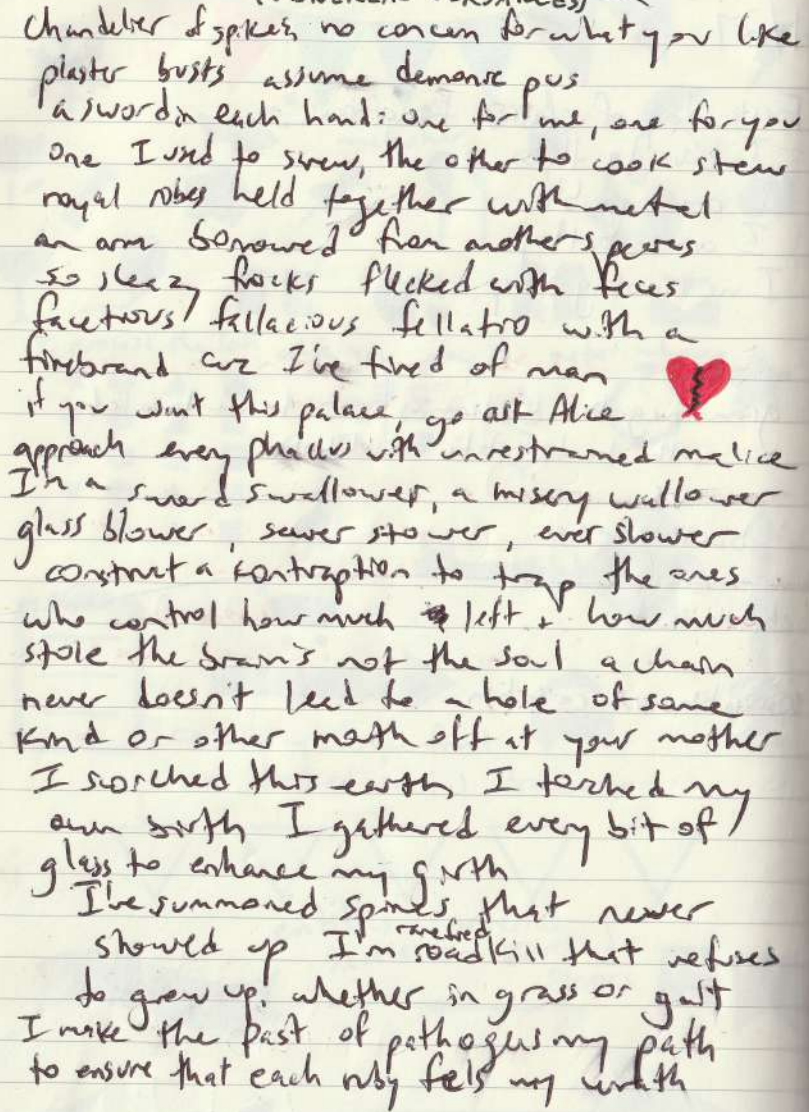 chandelier of spikes, no concern for what you like
plaster busts assume demonic pus
a sword in each hand: one for me, one for you
one I used to screw, the other to cook stew
royal robes held together with metal
an arm borrowed from another's pieces
so sleazy frocks flecked with feces
facetious, fallacious fellatio with a
firebrand cuz I've tired of man
if you want this palace, go ask Alice
approach every phallus with unrestrained malice
I'm a sword swallower, a misery wallower
glass blower, sewer stower, ever slower
construct a contraption to trap the ones
who control how much left + how much
stole the brain's not the soul a chain
never doesn't lead to a hole of some
kind or other mouth off at your mother
I scorched this earth, I torched my
own birth I gathered every bit of
glass to enhance my girth
I've summoned spines that never
showed up I'm rarefied roadkill that refuses
to grow up, whether in grass or guilt
I make the past of my path
to ensure that each ruby feels my wrath